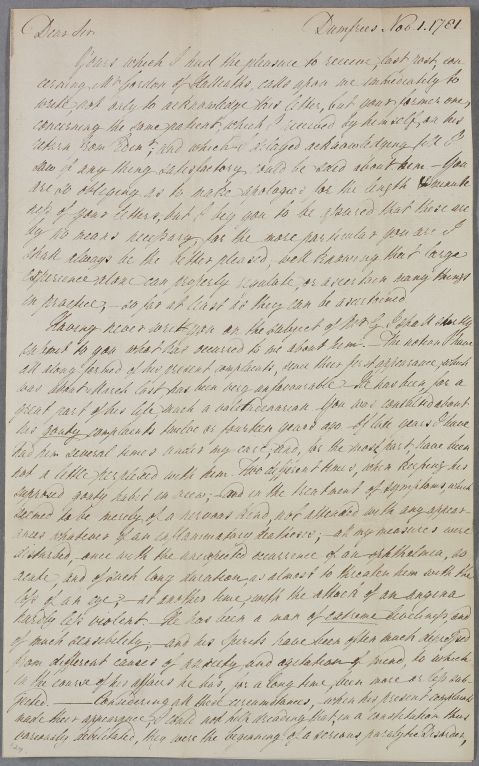 Dear Sir
Dumfries Nov. 1. 1781.
Yours which I had the pleasure to receive, last post, con-
cerning Mr Gordon of Halleaths, calls upon me immediately to
write not only to acknowledge this letter, but your former one,
concerning the same patient, which I received by himself, on his
return from Edinr, and which I delayed acknowledging till I
saw if any thing satisfactory could be said about him. You
are so obliging as to make apologies for the length & minute
ness of your letters, but I beg you to be assured that these are
by no means necessary, for the more particular you are I
shall always be the better pleased, well knowing that large
experience alone can properly regulate, or ascertain many things
in practice; so far at least as they can be ascertained.
Having never wrote you on the subject of Mr G. I shall shortly
submit to you what has occurred to me about him. The notion I have
all along formed of his present complaints, since their first appearance, which
was about March last, has been very unfavourable. He has been, for a
great part of his life, much a valetudinarian. You was consulted about
his gouty complaints twelve or fourteen years ago. Of late years I have
had him several times under my care, and, for the most part, have been
not a little perplexed with him. Two different times, when keeping his
supposed gouty habit in view, and in the treatment of symptoms, which
seemed to be merely of a nervous kind, not attended with any appear-
ances whatever of an inflammatory diathesis; all my measures were
disturbed, once with the unexpected occurrence of an ophthalmia, so
acute, and of such long duration, as almost to threaten him with the
loss of an eye; at another time, with the attack of an angina
hardly less violent. He has been a man of extreme feelings, and
of much sensibility, and his spirits have been often much depressed
from different causes of anxiety, and agitation of mind, to which
in the course of his affairs he has, for a long time, been more or less sub-
jected. Considering all these circumstances, when his present complaints
made their appearance, I could not help dreading that, in a constitution thus
variously debilitated, they were the beginning of a serious paralytic disorder,